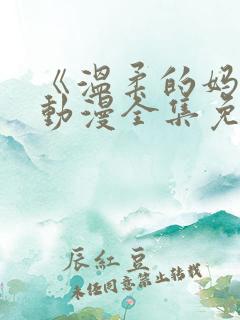 《溫柔的媽
動漫全集免
辰紅豆
未经同意禁止转载